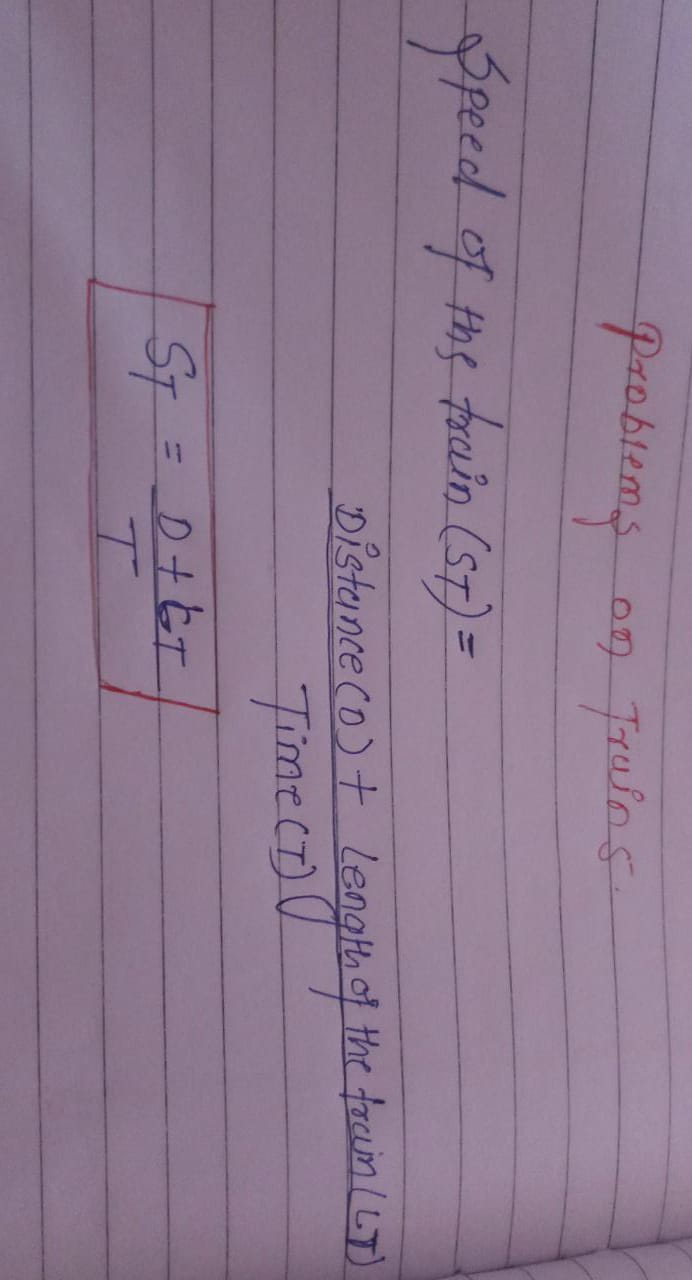 Problems on Trains.
Speed of the train (ST) =
Distance (D) + Length of the train (LT)
Time (T)
ST = D + LT
T